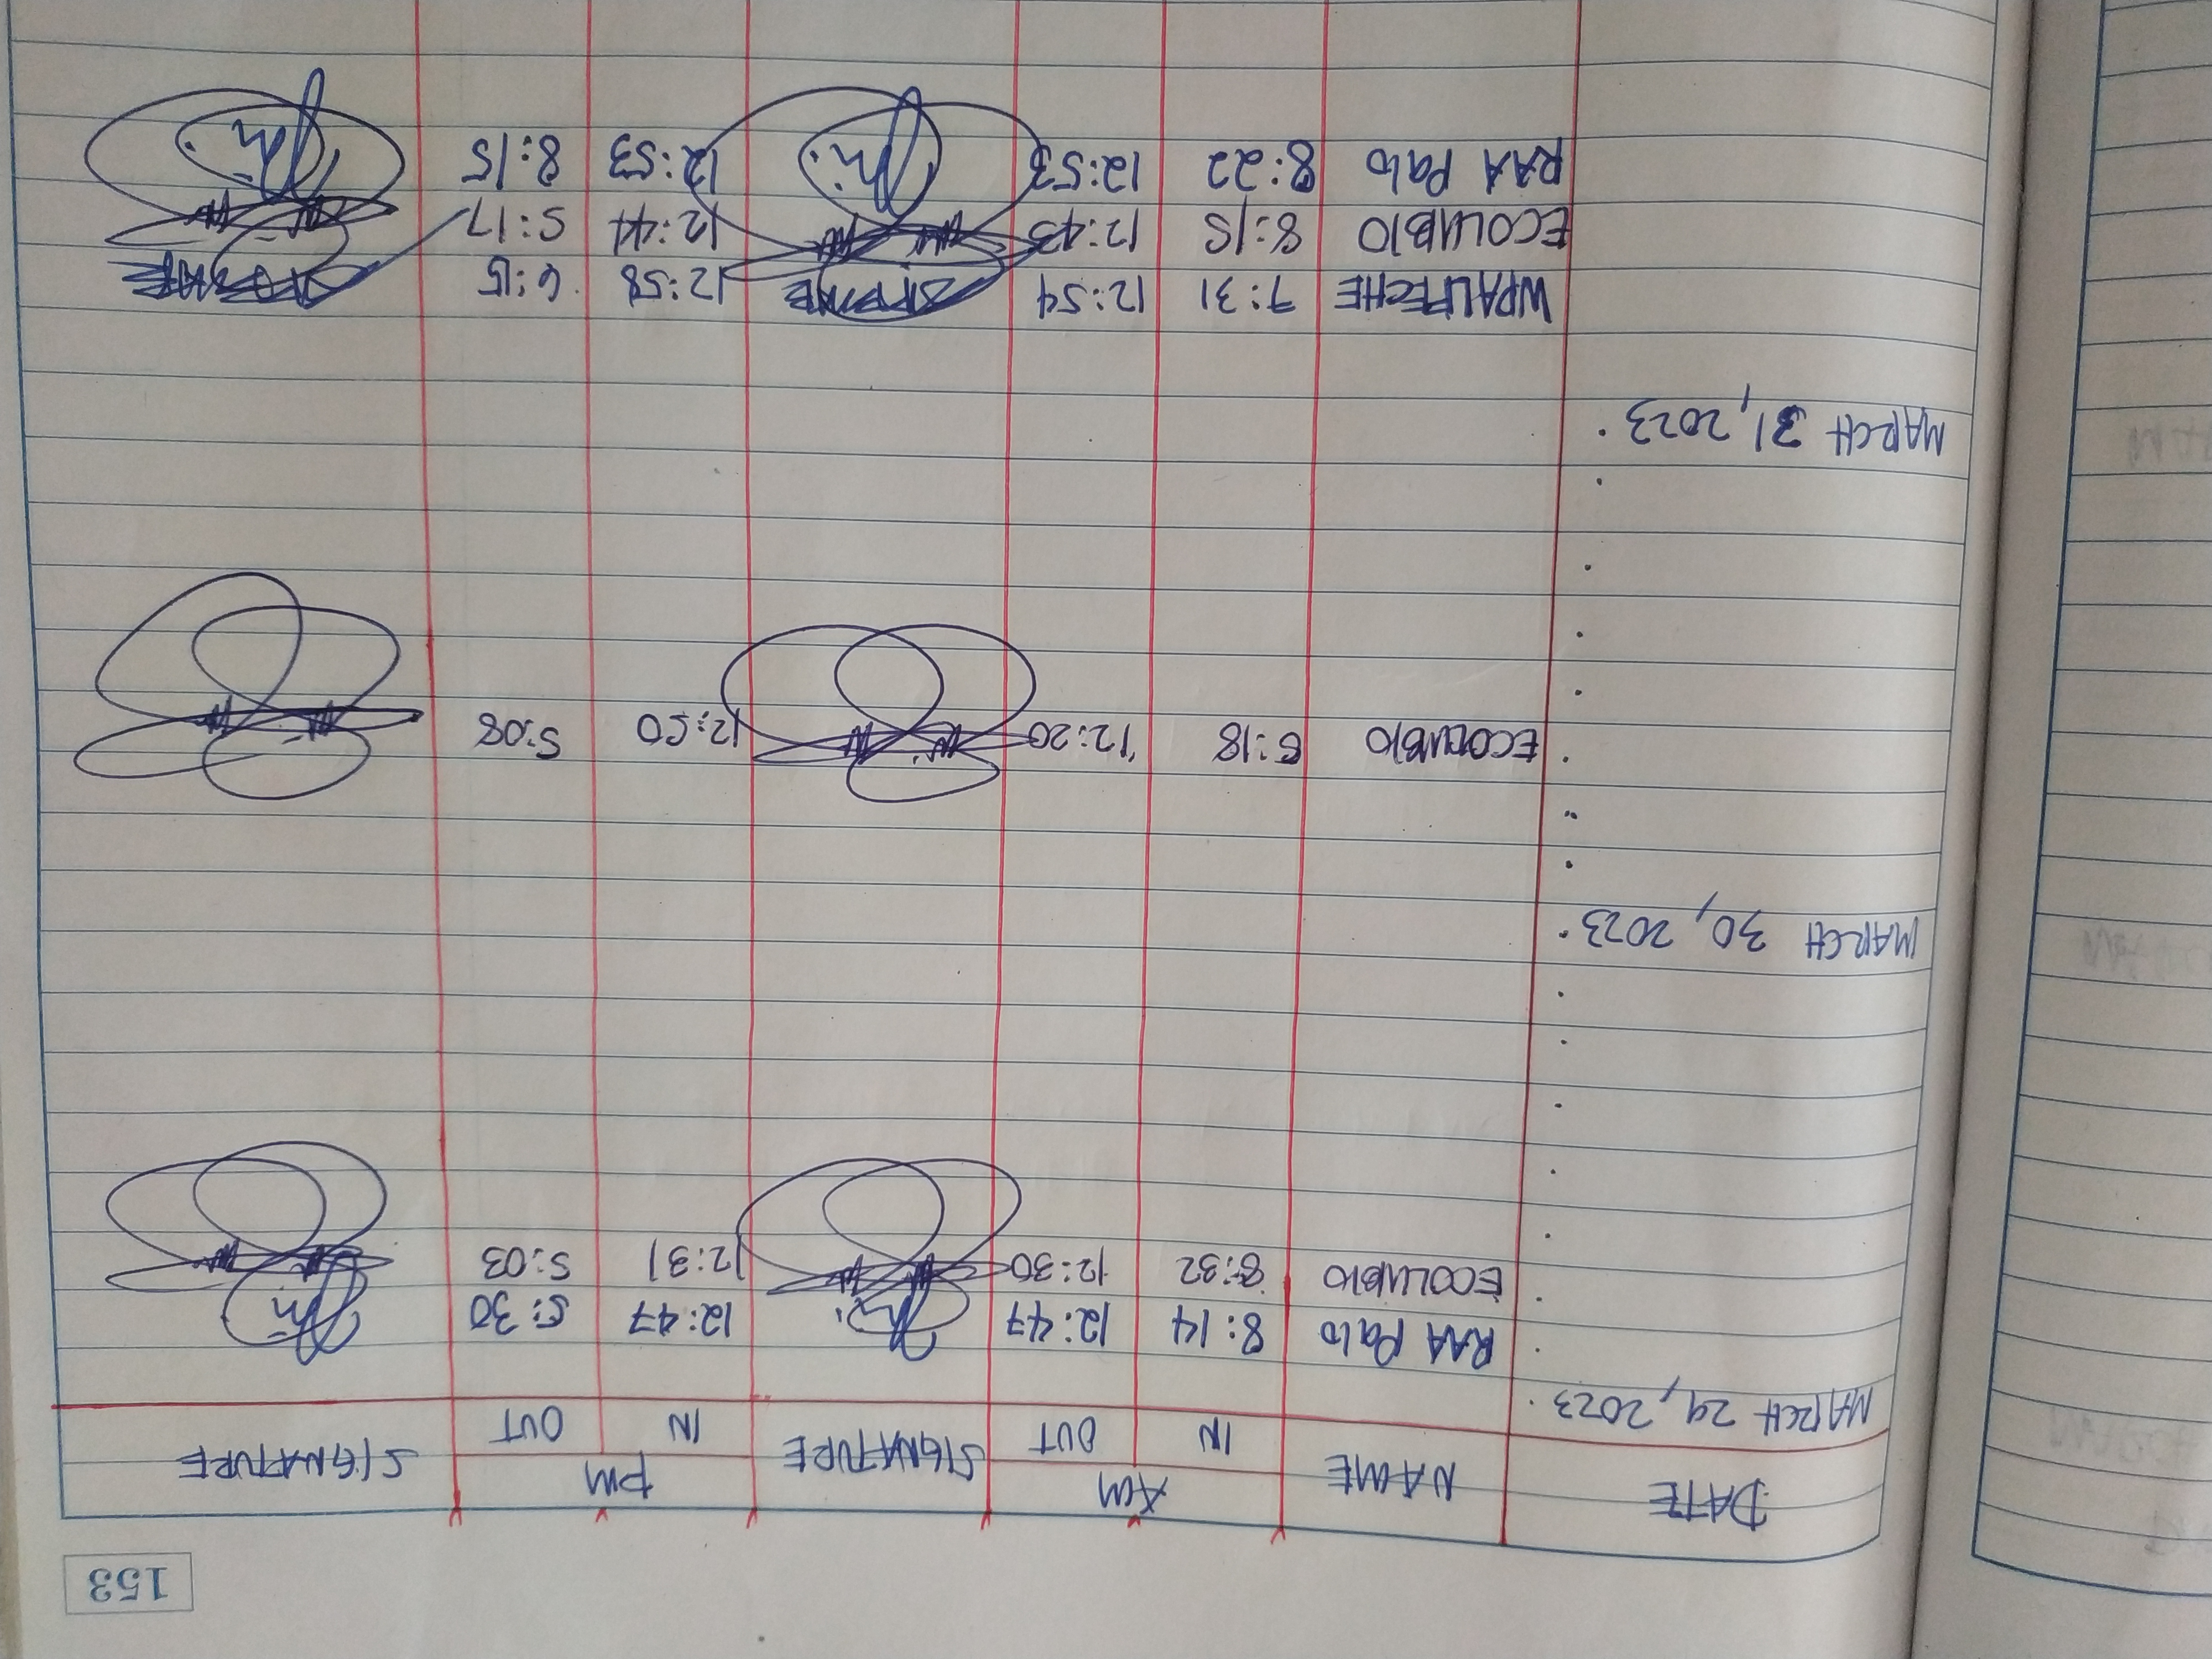 153
DATE NAME AM SIGNATURE PM SIGNATURE
IN OUT IN OUT
MARCH 29, 2023
RAA Palo 8:14 12:47 12:47 5:30
ECOLUBIO 8:32 12:30 12:31 5:03
MARCH 30, 2023
ECOLUBIO 8:18 12:20 12:50 5:08
MARCH 31, 2023
WPALITECHE 7:31 12:54 12:58 6:15
ECOLUBIO 8:15 12:43 12:44 5:17
RAA Palo 8:22 12:53 12:53 8:15